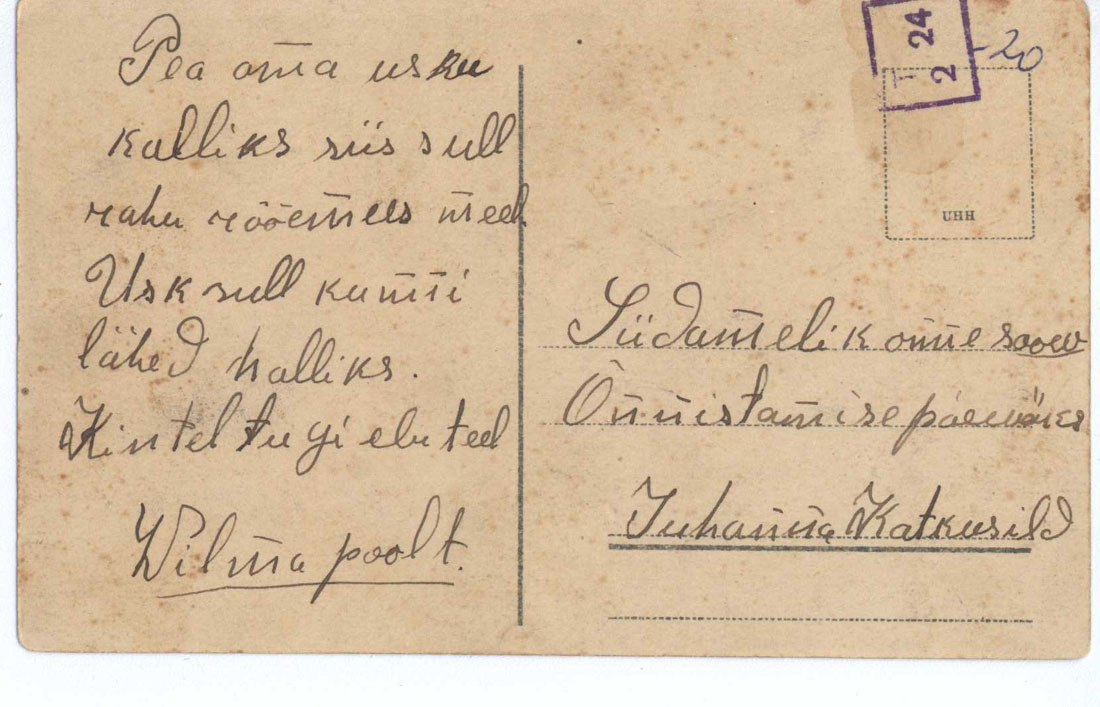 Pea oma usku
kalliks siis sull
rahu rõõemees meel
Usk sull kunni
lähed halliks.
Kintel tugi elu teel
Wilma poolt.
T 24
2
-20
UHH
Südamelik õnne soow
Õnnistamise päewaks
Juhanna Katkusild